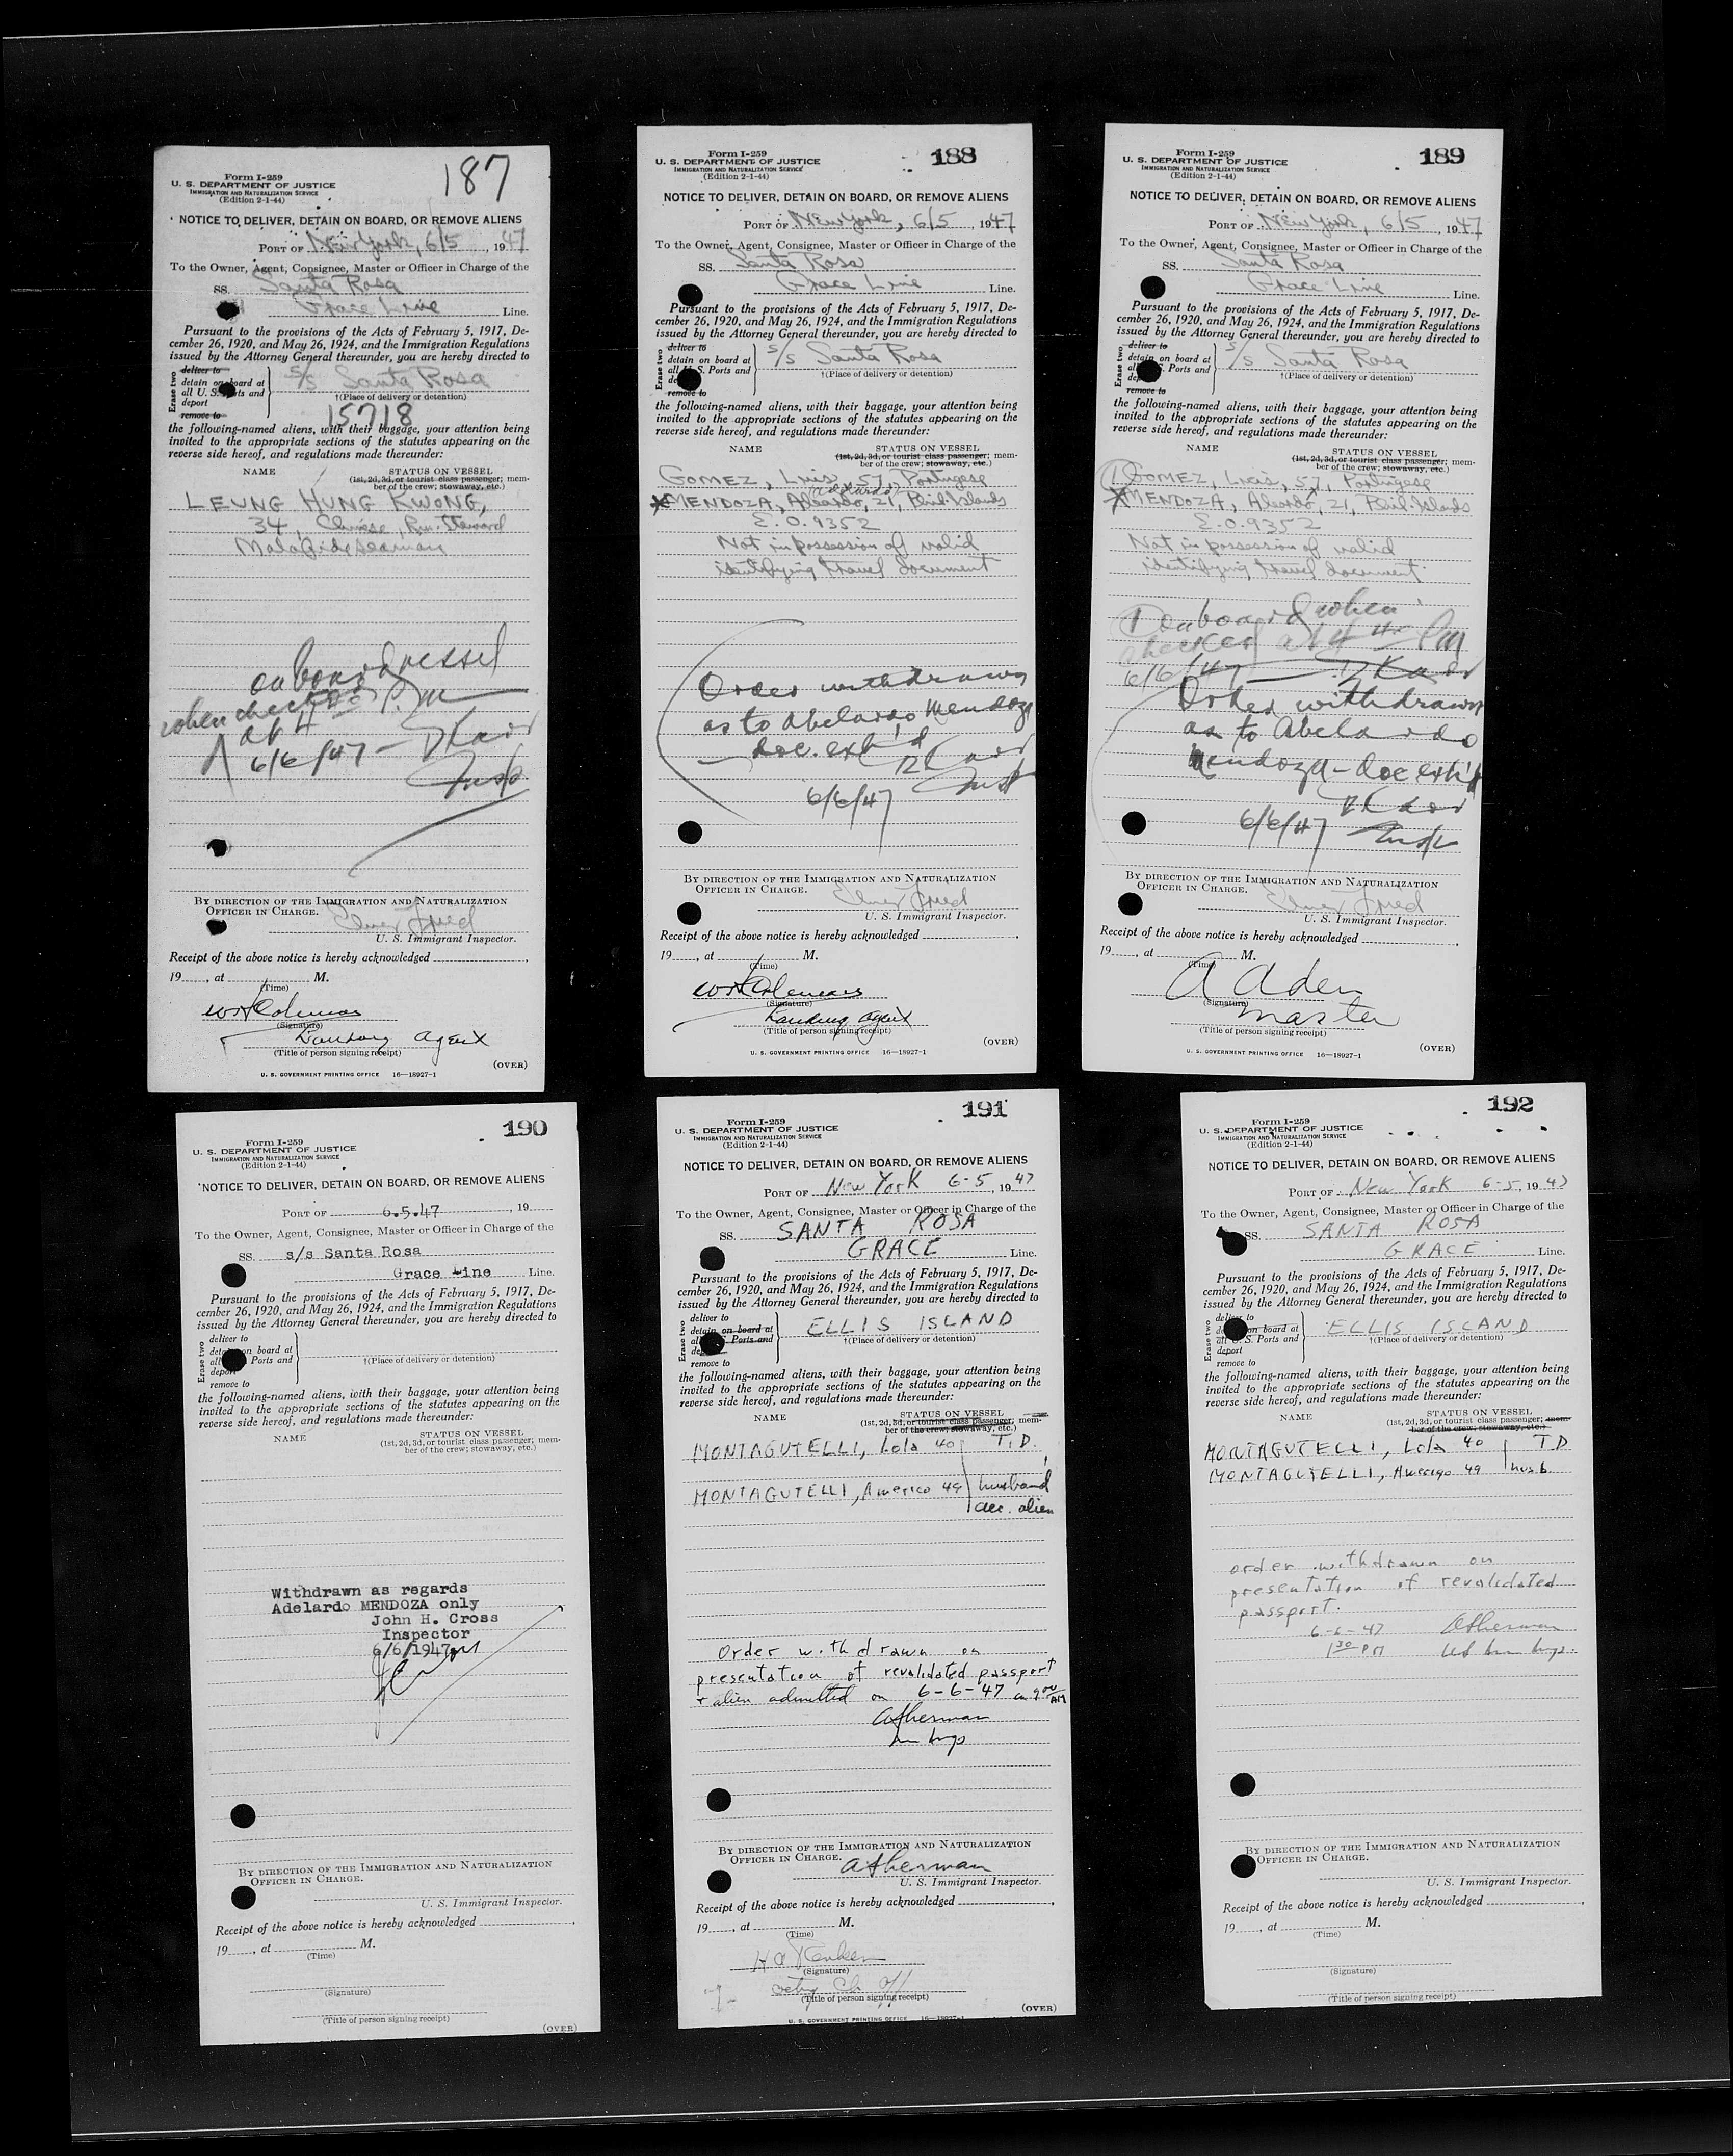 187
Form I-259
U. S. DEPARTMENT OF JUSTICE
IMMIGRATION AND NATURALIZATION SERVICE
(Edition 2-1-44)
NOTICE TO DELIVER, DETAIN ON BOARD, OR REMOVE ALIENS
PORT OF New York, 6/5, 1947
To the Owner, Agent, Consignee, Master or Officer in Charge of the
SS. Santa Rosa
Grace Line Line.
Pursuant to the provisions of the Acts of February 5, 1917, De-
cember 26, 1920, and May 26, 1924, and the Immigration Regulations
issued by the Attorney General thereunder, you are hereby directed to
Erase two
deliver to
detain on board at
all U. S. Ports and
deport
remove to
s/s Santa Rosa
†(Place of delivery or detention)
15718
the following-named aliens, with their baggage, your attention being
invited to the appropriate sections of the statutes appearing on the
reverse side hereof, and regulations made thereunder:
NAME STATUS ON VESSEL
(1st, 2d, 3d, or tourist class passenger; mem-
ber of the crew; stowaway, etc.)
LEUNG HUNG KWONG,
34, Chinese, Rm. Steward
Mala fide seaman
on board vessel
when checked P.M
at 4
6/6/47
Insp
BY DIRECTION OF THE IMMIGRATION AND NATURALIZATION
OFFICER IN CHARGE.
U. S. Immigrant Inspector.
Receipt of the above notice is hereby acknowledged
19 , at M.
(Time)
(Signature)
Landing Agent
(Title of person signing receipt)
(OVER)
U. S. GOVERNMENT PRINTING OFFICE 16—18927-1
188
Form I-259
U. S. DEPARTMENT OF JUSTICE
IMMIGRATION AND NATURALIZATION SERVICE
(Edition 2-1-44)
NOTICE TO DELIVER, DETAIN ON BOARD, OR REMOVE ALIENS
PORT OF New York, 6/5, 1947
To the Owner, Agent, Consignee, Master or Officer in Charge of the
SS. Santa Rosa
Grace Line Line.
Pursuant to the provisions of the Acts of February 5, 1917, De-
cember 26, 1920, and May 26, 1924, and the Immigration Regulations
issued by the Attorney General thereunder, you are hereby directed to
Erase two
deliver to
detain on board at
all U. S. Ports and
de
remove to
s/s Santa Rosa
†(Place of delivery or detention)
the following-named aliens, with their baggage, your attention being
invited to the appropriate sections of the statutes appearing on the
reverse side hereof, and regulations made thereunder:
NAME STATUS ON VESSEL
(1st, 2d, 3d, or tourist class passenger; mem-
ber of the crew; stowaway, etc.)
GOMEZ, Luis, 57, Portugese
MENDOZA, 21, Phil. Islands
E.O. 9352
Not in possession of valid
identifying travel document
Order withdrawn
as to Abelardo Mendoza
doc. exh'd
Insp
6/6/47
BY DIRECTION OF THE IMMIGRATION AND NATURALIZATION
OFFICER IN CHARGE.
U. S. Immigrant Inspector.
Receipt of the above notice is hereby acknowledged
19 , at M.
(Time)
(Signature)
Landing agent
(Title of person signing receipt)
(OVER)
U. S. GOVERNMENT PRINTING OFFICE 16—18927-1
189
Form I-259
U. S. DEPARTMENT OF JUSTICE
IMMIGRATION AND NATURALIZATION SERVICE
(Edition 2-1-44)
NOTICE TO DELIVER, DETAIN ON BOARD, OR REMOVE ALIENS
PORT OF New York, 6/5, 1947
To the Owner, Agent, Consignee, Master or Officer in Charge of the
SS. Santa Rosa
Grace Line Line.
Pursuant to the provisions of the Acts of February 5, 1917, De-
cember 26, 1920, and May 26, 1924, and the Immigration Regulations
issued by the Attorney General thereunder, you are hereby directed to
Erase two
deliver to
detain on board at
all S. Ports and
de
remove to
s/s Santa Rosa
†(Place of delivery or detention)
the following-named aliens, with their baggage, your attention being
invited to the appropriate sections of the statutes appearing on the
reverse side hereof, and regulations made thereunder:
NAME STATUS ON VESSEL
(1st, 2d, 3d, or tourist class passenger; mem-
ber of the crew; stowaway, etc.)
1 GOMEZ, Luis, 57, Portugese
MENDOZA, 21, Phil. Islands
E.O. 9352
Not in possession of valid
identifying travel document
1 on board when
checked at 4 PM
6/6/47
Order withdrawn
as to Abelardo
Mendoza - doc exh'd
6/6/47 Insp
BY DIRECTION OF THE IMMIGRATION AND NATURALIZATION
OFFICER IN CHARGE.
U. S. Immigrant Inspector.
Receipt of the above notice is hereby acknowledged
19 , at M.
(Time)
A Aden
(Signature)
master
(Title of person signing receipt)
(OVER)
U. S. GOVERNMENT PRINTING OFFICE 16—18927-1
190
Form I-259
U. S. DEPARTMENT OF JUSTICE
IMMIGRATION AND NATURALIZATION SERVICE
(Edition 2-1-44)
NOTICE TO DELIVER, DETAIN ON BOARD, OR REMOVE ALIENS
PORT OF 6.5.47 , 19
To the Owner, Agent, Consignee, Master or Officer in Charge of the
SS. s/s Santa Rosa
Grace Line Line.
Pursuant to the provisions of the Acts of February 5, 1917, De-
cember 26, 1920, and May 26, 1924, and the Immigration Regulations
issued by the Attorney General thereunder, you are hereby directed to
Erase two
deliver to
detain on board at
all Ports and
deport
remove to
†(Place of delivery or detention)
the following-named aliens, with their baggage, your attention being
invited to the appropriate sections of the statutes appearing on the
reverse side hereof, and regulations made thereunder:
NAME STATUS ON VESSEL
(1st, 2d, 3d, or tourist class passenger; mem-
ber of the crew; stowaway, etc.)
Withdrawn as regards
Adelardo MENDOZA only
John H. Cross
Inspector
6/6/1947
BY DIRECTION OF THE IMMIGRATION AND NATURALIZATION
OFFICER IN CHARGE.
U. S. Immigrant Inspector.
Receipt of the above notice is hereby acknowledged
19 , at M.
(Time)
(Signature)
(Title of person signing receipt)
(OVER)
191
Form I-259
U. S. DEPARTMENT OF JUSTICE
IMMIGRATION AND NATURALIZATION SERVICE
(Edition 2-1-44)
NOTICE TO DELIVER, DETAIN ON BOARD, OR REMOVE ALIENS
PORT OF New York 6-5, 1947
To the Owner, Agent, Consignee, Master or Officer in Charge of the
SS. SANTA ROSA
GRACE Line.
Pursuant to the provisions of the Acts of February 5, 1917, De-
cember 26, 1920, and May 26, 1924, and the Immigration Regulations
issued by the Attorney General thereunder, you are hereby directed to
Erase two
deliver to
detain on board at
all Ports and
de
remove to
ELLIS ISLAND
†(Place of delivery or detention)
the following-named aliens, with their baggage, your attention being
invited to the appropriate sections of the statutes appearing on the
reverse side hereof, and regulations made thereunder:
NAME STATUS ON VESSEL
(1st, 2d, 3d, or tourist class passenger; mem-
ber of the crew; stowaway, etc.)
MONTAGUTELLI, Lola 40 T.D.
MONTAGUTELLI, Americo 49 husband
acc. alien
Order withdrawn on
presentation of revalidated passport
+ alien admitted on 6-6-47 9 00 AM
Asherman
Imm Insp
BY DIRECTION OF THE IMMIGRATION AND NATURALIZATION
OFFICER IN CHARGE. Asherman
U. S. Immigrant Inspector.
Receipt of the above notice is hereby acknowledged
19 , at M.
(Time)
(Signature)
(Title of person signing receipt)
(OVER)
U. S. GOVERNMENT PRINTING OFFICE 16—18927-1
192
Form I-259
U. S. DEPARTMENT OF JUSTICE
IMMIGRATION AND NATURALIZATION SERVICE
(Edition 2-1-44)
NOTICE TO DELIVER, DETAIN ON BOARD, OR REMOVE ALIENS
PORT OF New York 6-5, 1947
To the Owner, Agent, Consignee, Master or Officer in Charge of the
SS. SANTA ROSA
GRACE Line.
Pursuant to the provisions of the Acts of February 5, 1917, De-
cember 26, 1920, and May 26, 1924, and the Immigration Regulations
issued by the Attorney General thereunder, you are hereby directed to
Erase two
deliver to
on board at
all U. S. Ports and
deport
remove to
ELLIS ISLAND
†(Place of delivery or detention)
the following-named aliens, with their baggage, your attention being
invited to the appropriate sections of the statutes appearing on the
reverse side hereof, and regulations made thereunder:
NAME STATUS ON VESSEL
(1st, 2d, 3d, or tourist class passenger; mem-
ber of the crew; stowaway, etc.)
MONTAGUTELLI, Lola 40 T D
MONTAGUTELLI, Americo 49 husb.
order withdrawn on
presentation of revalidated
passport.
6-6-47 Asherman
1 30 PM
BY DIRECTION OF THE IMMIGRATION AND NATURALIZATION
OFFICER IN CHARGE.
U. S. Immigrant Inspector.
Receipt of the above notice is hereby acknowledged
19 , at M.
(Time)
(Signature)
(Title of person signing receipt)